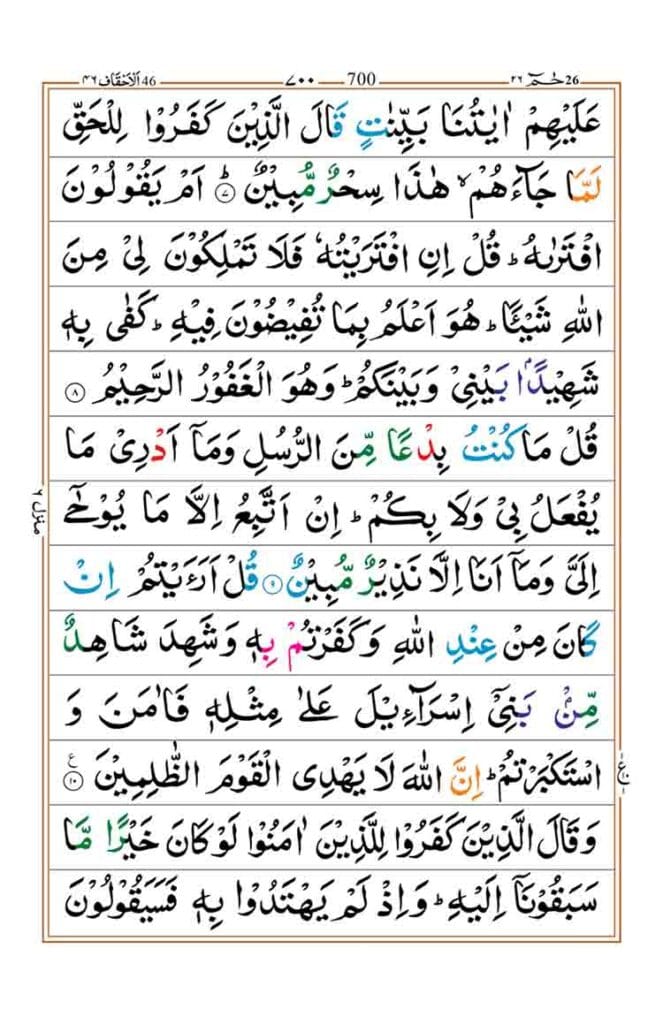 الاحقاف ٤٦ 46 ٧٠٠ 700 حٰمٓ ٢٦ 26
عَلَيْهِمْ اٰيٰتُنَا بَيِّنٰتٍ قَالَ الَّذِيْنَ كَفَرُوْا لِلْحَقِّ
لَمَّا جَآءَهُمْ ۙ هٰذَا سِحْرٌ مُّبِيْنٌ ؕ ۝٧ اَمْ يَقُوْلُوْنَ
افْتَرٰىهُ ؕ قُلْ اِنِ افْتَرَيْتُهٗ فَلَا تَمْلِكُوْنَ لِيْ مِنَ
اللّٰهِ شَيْـًٔا ؕ هُوَ اَعْلَمُ بِمَا تُفِيْضُوْنَ فِيْهِ ؕ كَفٰى بِهٖ
شَهِيْدًۢا بَيْنِيْ وَبَيْنَكُمْ ؕ وَهُوَ الْغَفُوْرُ الرَّحِيْمُ ۝٨
قُلْ مَا كُنْتُ بِدْعًا مِّنَ الرُّسُلِ وَمَآ اَدْرِيْ مَا
يُفْعَلُ بِيْ وَلَا بِكُمْ ؕ اِنْ اَتَّبِعُ اِلَّا مَا يُوْحٰٓى
اِلَيَّ وَمَآ اَنَا اِلَّا نَذِيْرٌ مُّبِيْنٌ ۝٩ قُلْ اَرَءَيْتُمْ اِنْ
كَانَ مِنْ عِنْدِ اللّٰهِ وَكَفَرْتُمْ بِهٖ وَشَهِدَ شَاهِدٌ
مِّنْۢ بَنِيْٓ اِسْرَآءِيْلَ عَلٰى مِثْلِهٖ فَاٰمَنَ وَ
اسْتَكْبَرْتُمْ ؕ اِنَّ اللّٰهَ لَا يَهْدِى الْقَوْمَ الظّٰلِمِيْنَ ۝١٠ ع
وَقَالَ الَّذِيْنَ كَفَرُوْا لِلَّذِيْنَ اٰمَنُوْا لَوْ كَانَ خَيْرًا مَّا
سَبَقُوْنَآ اِلَيْهِ ؕ وَاِذْ لَمْ يَهْتَدُوْا بِهٖ فَسَيَقُوْلُوْنَ
منزل ٦